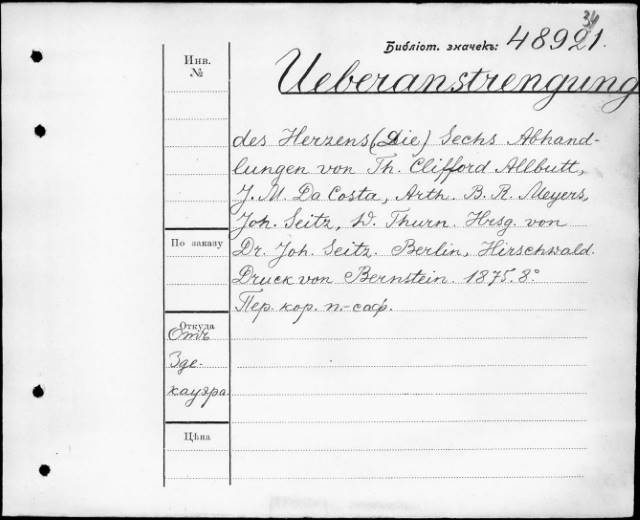 34
Библіот. значекъ: 48921.
Инв. №
Ueberanstrengung
des Herzens (Die) Sechs Abhand-
lungen von Th. Clifford Allbutt,
J. M. Da Costa, Arth. B. R. Meyers,
Joh. Seitz, W. Thurn. Hrsg. von
По заказу
Dr. Joh. Seitz. Berlin, Hirschwald.
Druck von Bernstein. 1875. 8°
Пер. кор. п.-саф.
Откуда
Отъ
Зде-
кауэра.
Цѣна